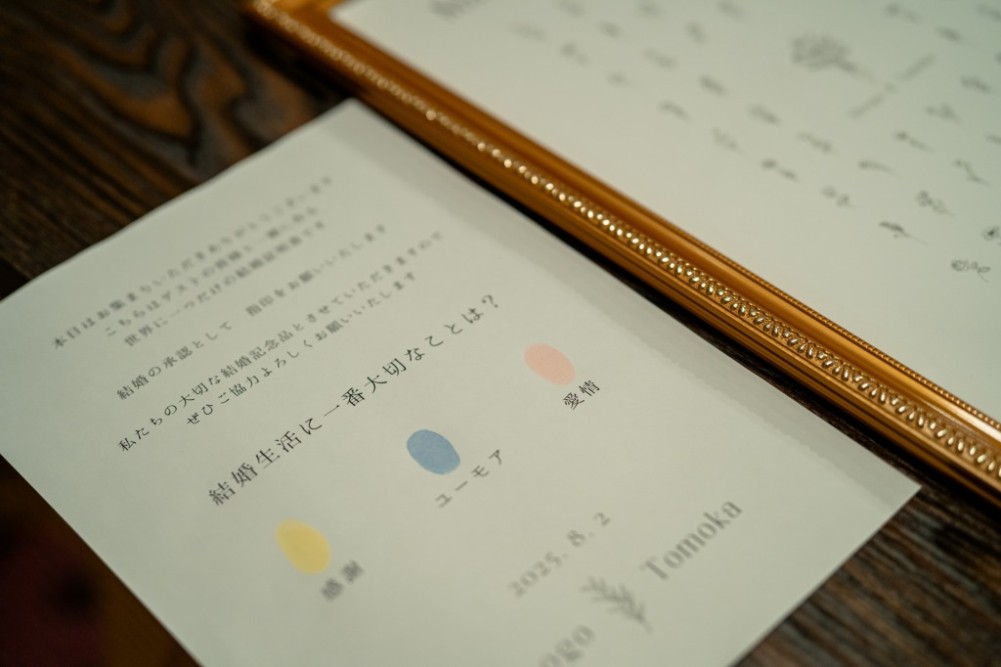 本日はお集まりいただきありがとうございます
こちらはゲストの皆様と一緒に作る
世界に一つだけの結婚証明書です
結婚の承認として 指印をお願いいたします
私たちの大切な結婚記念品とさせていただきますので
ぜひご協力よろしくお願いいたします
結婚生活に一番大切なことは？
感謝
ユーモア
愛情
2025. 8. 2
ogo
Tomoka